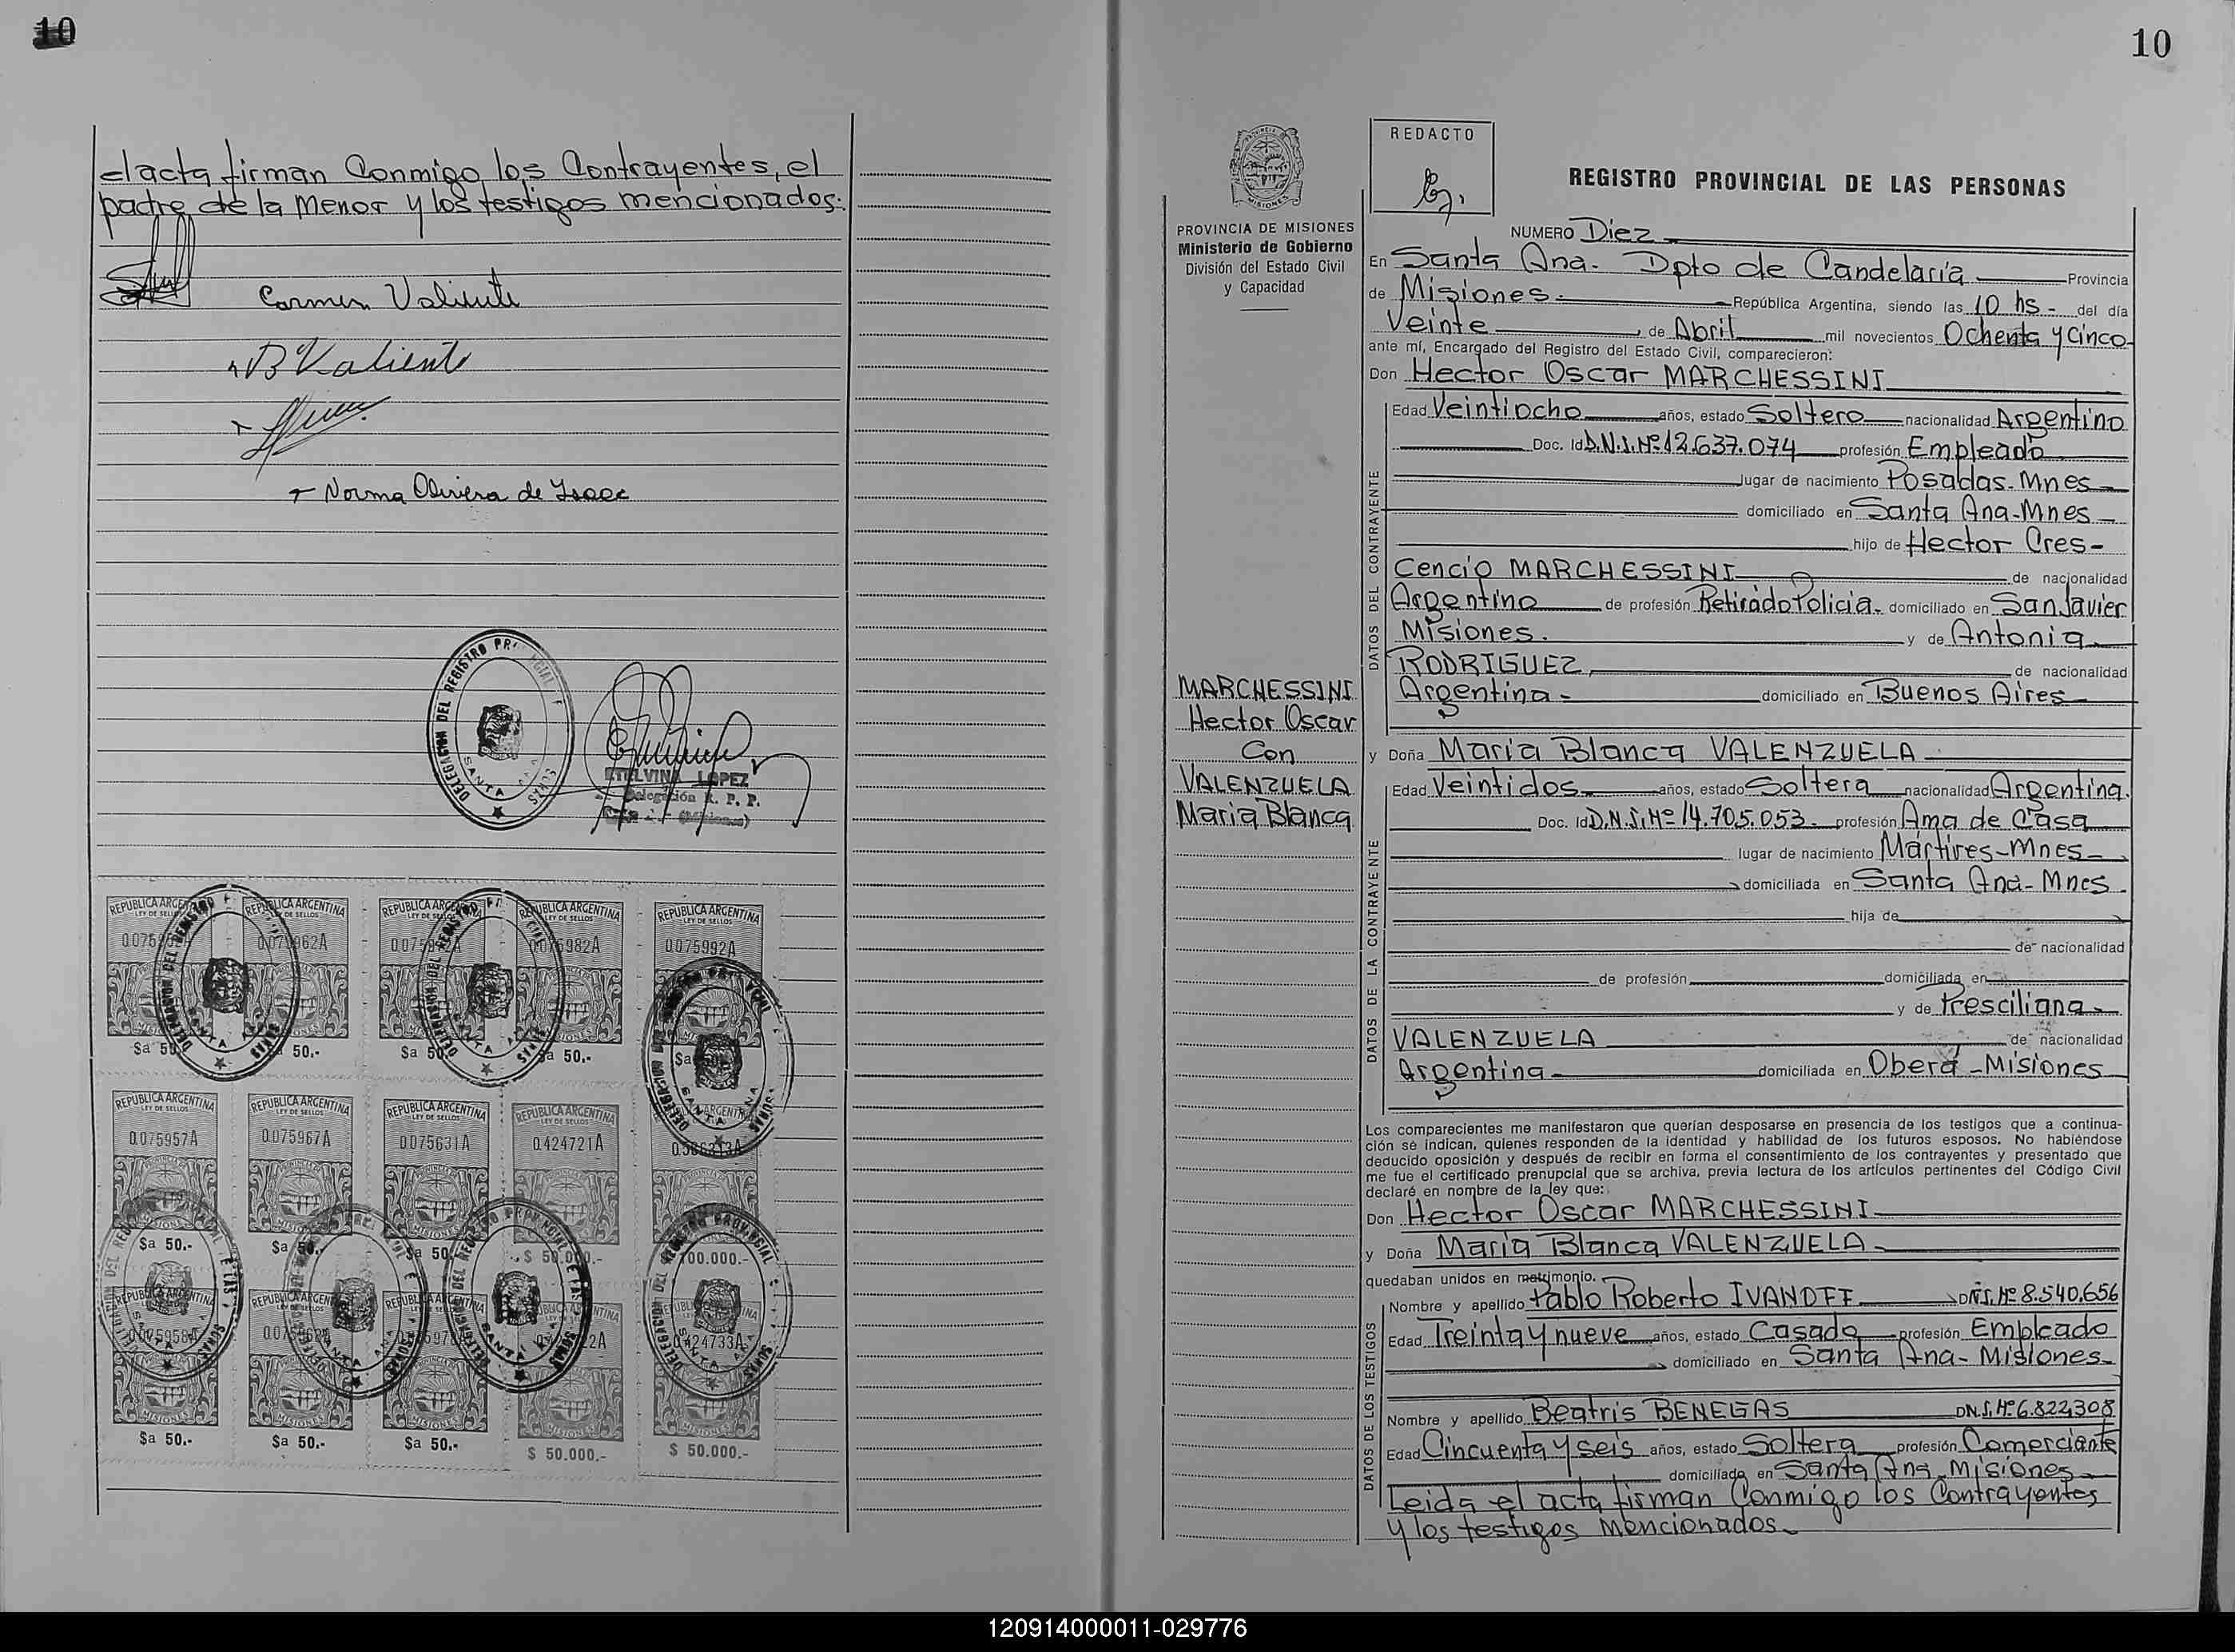 10
el acta firman Conmigo los Contrayentes, el
padre de la Menor y los testigos mencionados.
Carmen Valiente
B Valiente
Norma Olivera de
DELEGACION DEL REGISTRO PROVINCIAL DE LAS PERSONAS
SANTA ANA
ETELVINA LOPEZ
Delegación R. P. P.
(Misiones)
REPUBLICA ARGENTINA
LEY DE SELLOS
075962A
0075982A
0075992A
$a 50.-
50.-
$a 50.-
$a 50.-
REPUBLICA ARGENTINA
LEY DE SELLOS
0075957A
0075967A
0075631A
0.424721A
$a 50.-
$a 50.-
$a 50.-
$ 50.000.-
100.000.-
0075958A
0.424733A
MISIONES
$a 50.-
$a 50.-
$a 50.-
$ 50.000.-
$ 50.000.-
10
PROVINCIA DE MISIONES
Ministerio de Gobierno
División del Estado Civil
y Capacidad
MARCHESSINI
Hector Oscar
Con
VALENZUELA
Maria Blanca
REDACTO
REGISTRO PROVINCIAL DE LAS PERSONAS
NUMERO Diez
En Santa Ana. Dpto de Candelaria Provincia
de Misiones. República Argentina, siendo las 10 hs - del día
Veinte, de Abril mil novecientos Ochenta y Cinco
ante mí, Encargado del Registro del Estado Civil, comparecieron:
Don Hector Oscar MARCHESSINI
DATOS DEL CONTRAYENTE
Edad Veintiocho años, estado Soltero nacionalidad Argentino
Doc. Id D.N.I. Nº 12.637.074 profesión Empleado
lugar de nacimiento Posadas-Mnes
domiciliado en Santa Ana-Mnes
hijo de Hector Cres-
Cencio MARCHESSINI de nacionalidad
Argentino de profesión Retirado Policia. domiciliado en San Javier
Misiones. y de Antonia
RODRIGUEZ de nacionalidad
Argentina - domiciliado en Buenos Aires
y Doña Maria Blanca VALENZUELA
DATOS DE LA CONTRAYENTE
Edad Veintidos años, estado Soltera nacionalidad Argentina.
Doc. Id D.N.I. Nº 14.705.053. profesión Ama de Casa
lugar de nacimiento Mártires-Mnes
domiciliada en Santa Ana-Mnes
hija de
de nacionalidad
de profesión domiciliada en
y de Presciliana
VALENZUELA de nacionalidad
Argentina domiciliada en Oberá-Misiones
Los comparecientes me manifestaron que querían desposarse en presencia de los testigos que a continua-
ción se indican, quienes responden de la identidad y habilidad de los futuros esposos. No habiéndose
deducido oposición y después de recibir en forma el consentimiento de los contrayentes y presentado que
me fue el certificado prenupcial que se archiva, previa lectura de los artículos pertinentes del Código Civil
declaré en nombre de la ley que:
Don Hector Oscar MARCHESSINI
y Doña Maria Blanca VALENZUELA
quedaban unidos en matrimonio.
DATOS DE LOS TESTIGOS
Nombre y apellido Pablo Roberto IVANOFF D.N.I. Nº 8.540.656
Edad Treinta y nueve años, estado Casado profesión Empleado
domiciliado en Santa Ana-Misiones
Nombre y apellido Beatris BENEGAS D.N.I. Nº 6.822.308
Edad Cincuenta y seis años, estado Soltera profesión Comerciante
domiciliada en Santa Ana-Misiones
Leida el acta firman Conmigo los Contrayentes
y los testigos Mencionados
120914000011-029776